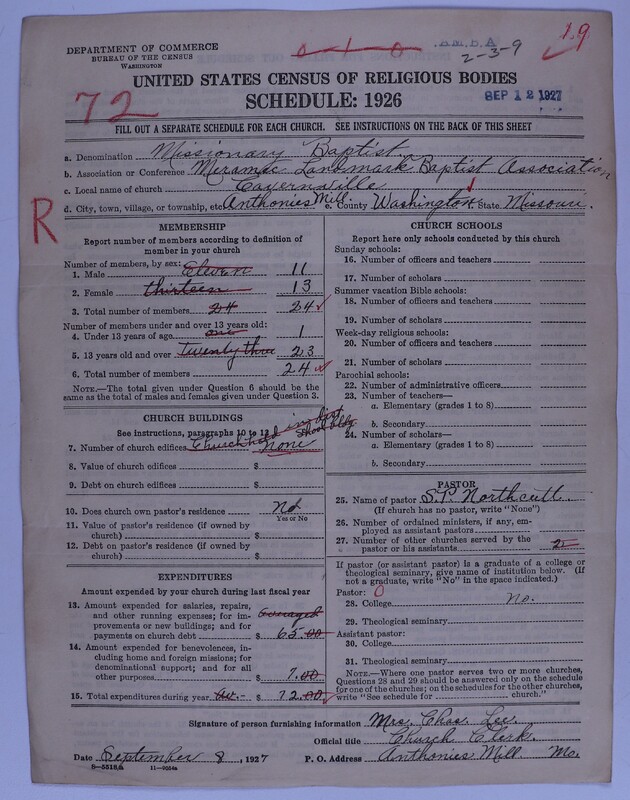 DEPARTMENT OF COMMERCE
BUREAU OF THE CENSUS
WASHINGTON
0 1 0
A.B.M.A.
2-3-9
19
UNITED STATES CENSUS OF RELIGIOUS BODIES
72
SCHEDULE: 1926
SEP 12 1927
FILL OUT A SEPARATE SCHEDULE FOR EACH CHURCH. SEE INSTRUCTIONS ON THE BACK OF THIS SHEET
a. Denomination Missionary Baptist
b. Association or Conference Meramac Landmark Baptist Association
c. Local name of church Cavernville
d. City, town, village, or township, etc. Anthonies Mill. e. County Washington State Missouri.
R
MEMBERSHIP
Report number of members according to definition of
member in your church
Number of members, by sex:
1. Male Eleven 11
2. Female thirteen 13
3. Total number of members 24 24
Number of members under and over 13 years old:
4. Under 13 years of age one 1
5. 13 years old and over Twenty three 23
6. Total number of members 24
NOTE.—The total given under Question 6 should be the
same as the total of males and females given under Question 3.
CHURCH BUILDINGS
See instructions, paragraphs 10 to 12
7. Number of church edifices Church held in school None
8. Value of church edifices $
9. Debt on church edifices $
10. Does church own pastor's residence No
Yes or No
11. Value of pastor's residence (if owned by
church) $
12. Debt on pastor's residence (if owned by
church) $
EXPENDITURES
Amount expended by your church during last fiscal year
13. Amount expended for salaries, repairs,
and other running expenses; for im-
provements or new buildings; and for
payments on church debt $ 65.00
14. Amount expended for benevolences, in-
cluding home and foreign missions; for
denominational support; and for all
other purposes $ 7.00
15. Total expenditures during year $ 72.00
CHURCH SCHOOLS
Report here only schools conducted by this church
Sunday schools:
16. Number of officers and teachers
17. Number of scholars
Summer vacation Bible schools:
18. Number of officers and teachers
19. Number of scholars
Week-day religious schools:
20. Number of officers and teachers
21. Number of scholars
Parochial schools:
22. Number of administrative officers
23. Number of teachers—
a. Elementary (grades 1 to 8)
b. Secondary
24. Number of scholars—
a. Elementary (grades 1 to 8)
b. Secondary
PASTOR
25. Name of pastor S.P. Northcutt
(If church has no pastor, write "None")
26. Number of ordained ministers, if any, em-
ployed as assistant pastors
27. Number of other churches served by the
pastor or his assistants 2
If pastor (or assistant pastor) is a graduate of a college or
theological seminary, give name of institution below. (If
not a graduate, write "No" in the space indicated.)
Pastor: 0
28. College No.
29. Theological seminary
Assistant pastor:
30. College
31. Theological seminary
NOTE.—Where one pastor serves two or more churches,
Questions 28 and 29 should be answered only on the schedule
for one of the churches; on the schedules for the other churches,
write "See schedule for church."
Signature of person furnishing information Mrs. Chas Lee
Official title Church Clerk.
Date September 8, 1927 P. O. Address Anthonies Mill. Mo.